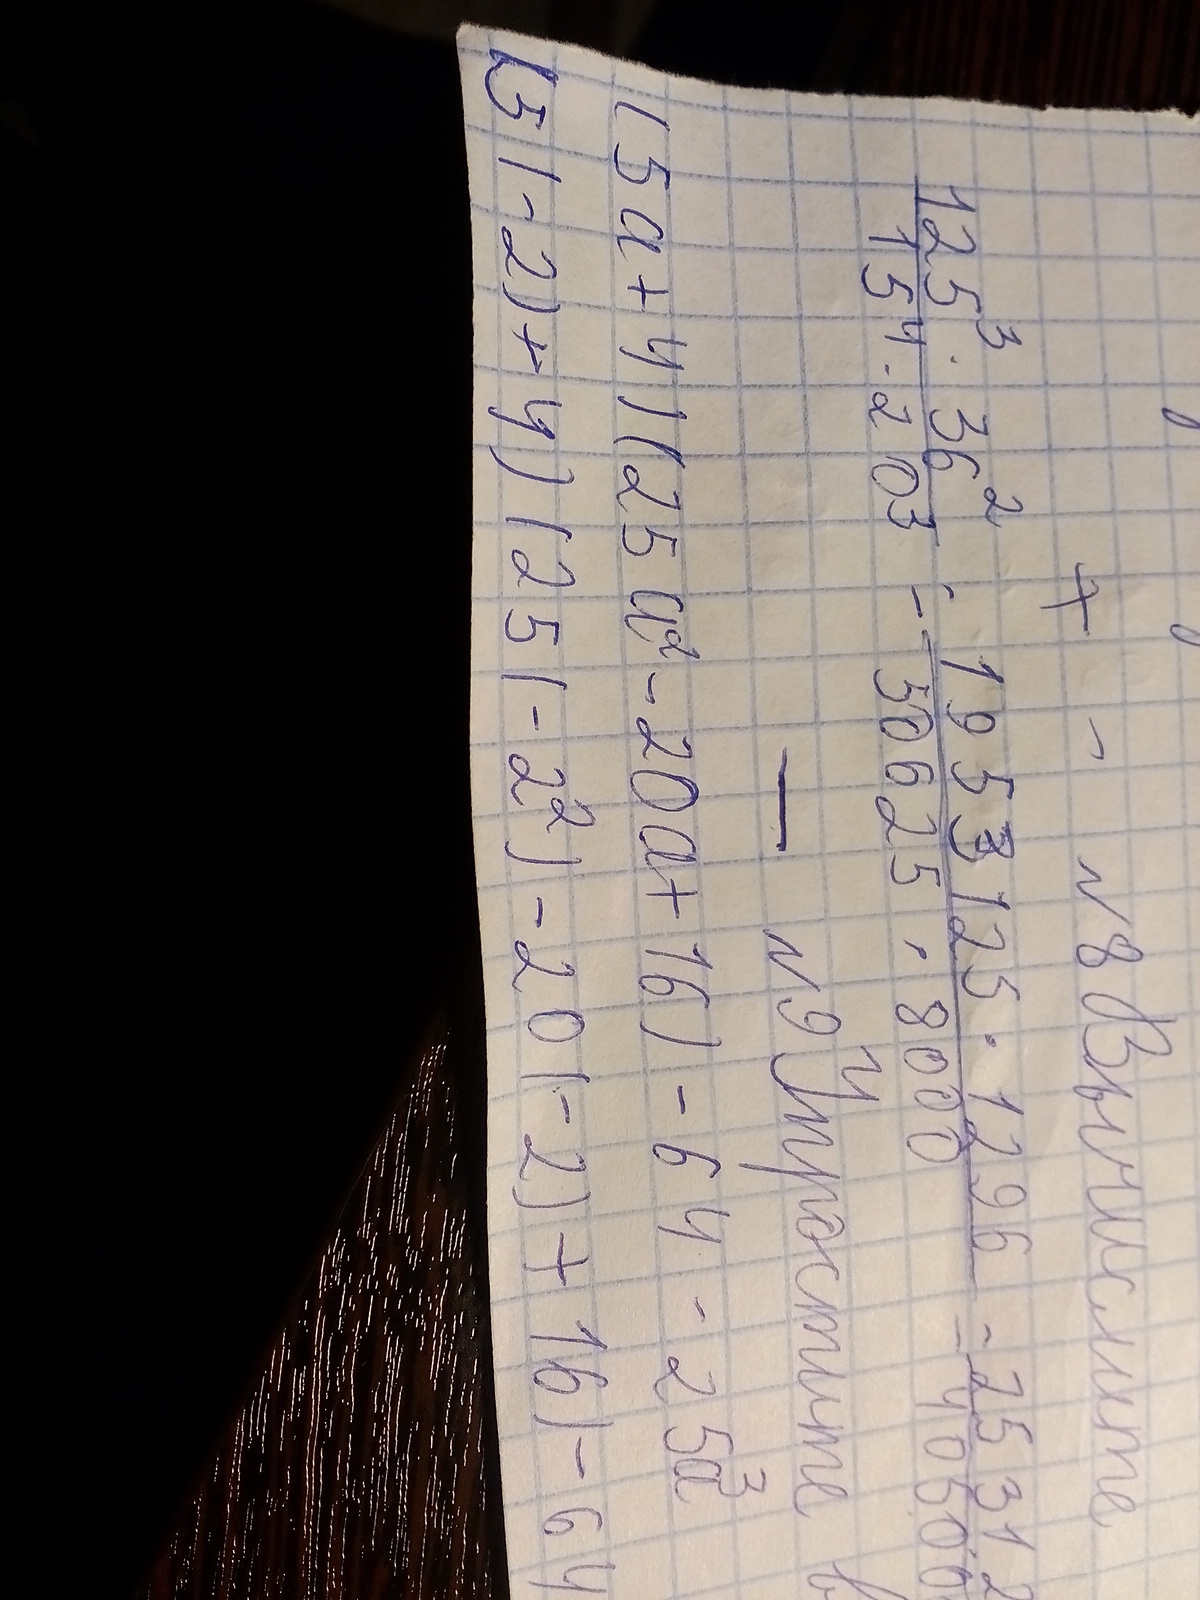 + - N8 Вычислите
125³ · 36² / 15⁴ · 20³ = 1953125 · 1296 / 50625 · 8000 = 25312 / 40500
— N9 Упростите в
(5a + 4)(25a² - 20a + 16) - 64 - 25a³
(5(-2) + 4)(25(-2²) - 20(-2) + 16) - 64